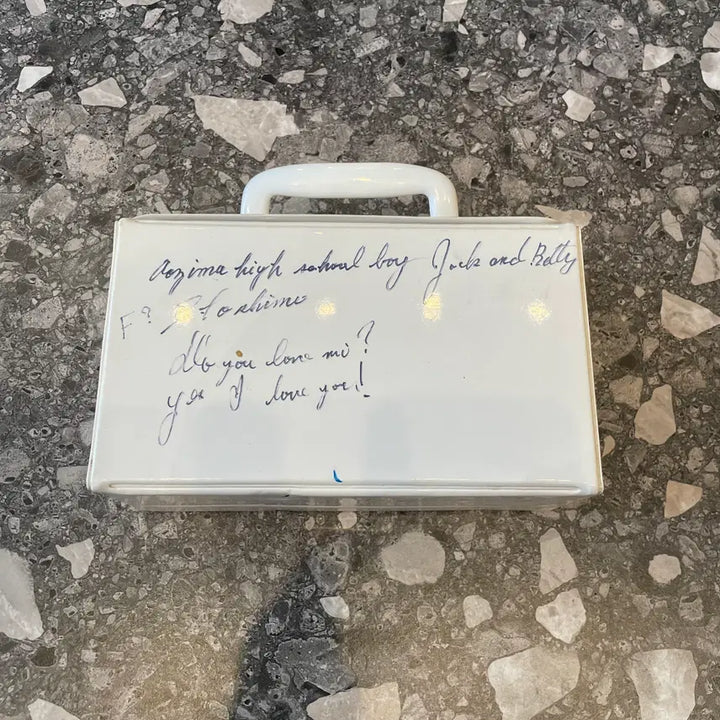 Aozima high school boy Jack and Betty
F?
Do you love mi?
yes I love you!